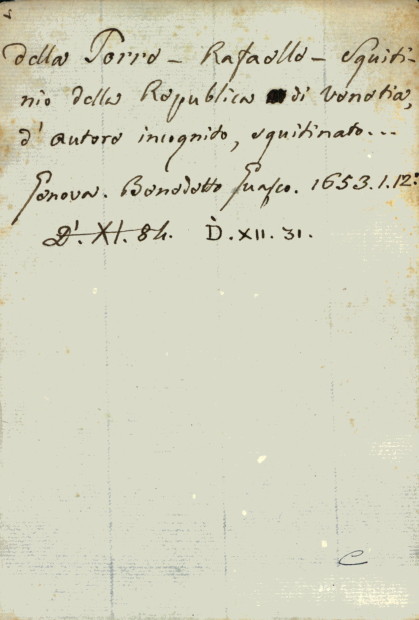 della Torre – Rafaello – Squiti-
nio della Republica di Venetia,
d'autore incognito, squitinato...
Genova. Benedetto Guasco. 1653.1.12:
D'. XI. 84. D̀. XII. 31.
C